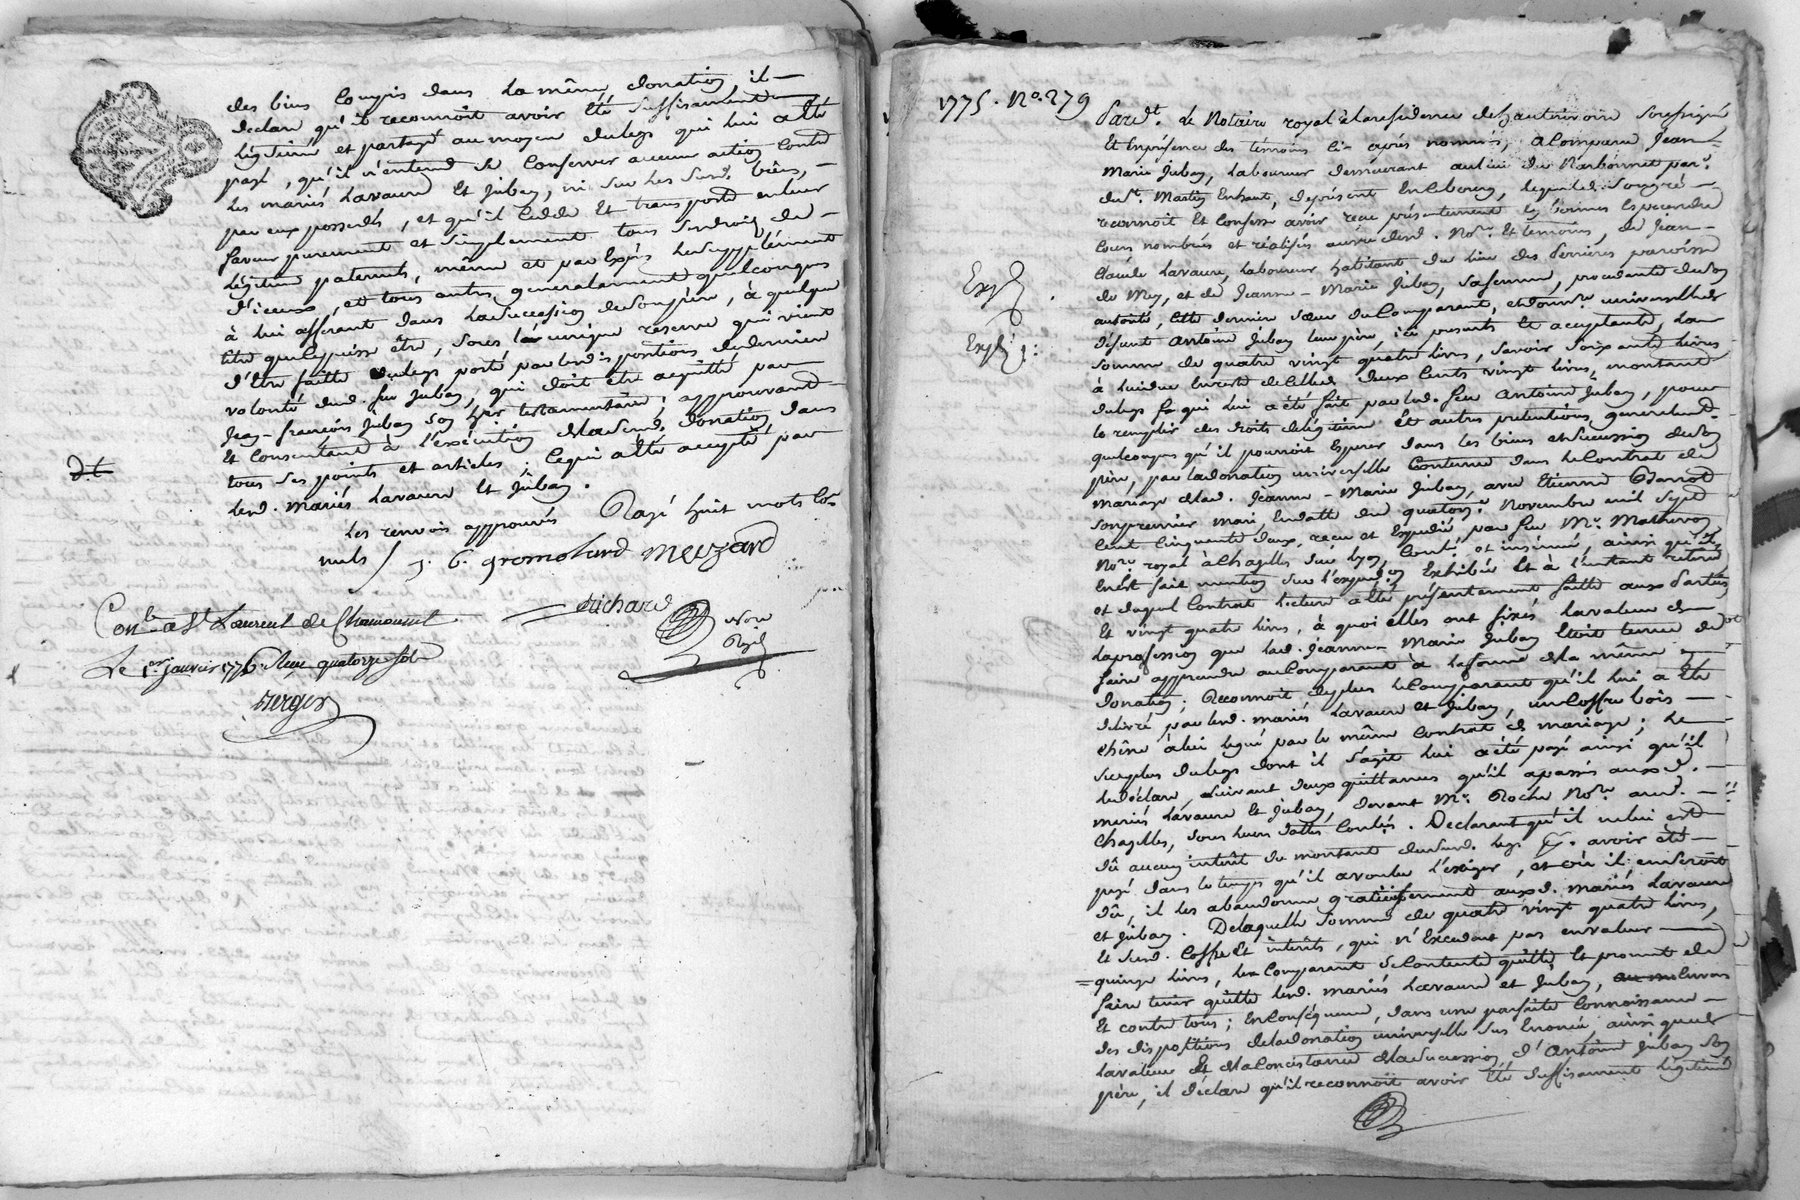 des biens compris dans la même donation il
declare qu'il reconnoit avoir été suffisamment
légitimé et partagé au moyen du legs qui lui a été
payé, qu'il n'entend se conserver aucune action contre
les mariés Lavaure et Jubay, ni sur les surd. biens,
par eux possedés, et qu'il cedde et transporte en leur
faveur purement et simplement tous ses droits de
légitime paternels, même et par exprès les supplément
d'iceux, et tous autres generalement quelconques
à lui afferant dans la succession de son père, à quelque
titre que ce puisse être, sous la unique réserve qui vient
d'être faitte du legs porté par les dispositions de derniere
volonté dud. feu Jubay, qui doit être acquitté par
Jean-françois Jubay son her testamentaire; approuvant
et consentant à l'exécution de la susd. donation dans
tous ses points et articles; ce qui a été accepté par
lesd. mariés Lavaure et Jubay.
Les renvois approuvés Rayé huit mots
nuls J. C. gromolard meuzard
Richard
Con.lé a St. Laurent de Chamousset
Le 1er janvier 1776 Reçu quatorze sols
Berger
1775. No. 279
Pard.t le Notaire royal à la residence de soussigné
et en présence des témoins ci-après nommés, a comparu Jean-
Marie Jubay, laboureur demeurant au lieu du Narbonnet par.
de St. Martin de présent en ce bourg, lequel de son gré
reconnoit et confesse avoir reçu présentement en bonnes especes de
cours nombrés et réalisés au vû desd. No.re et temoins, de Jean-
Claude Lavaure, laboureur habitant du lieu des Perrieres paroisse
de Meys, et de Jeanne-Marie Jubay, sa femme, procédante de son
autorité, cette derniere sœur du comparant, et donre universelle de
defunt Antoine Jubay leur père, ici presents et acceptants, la
Expé
somme de quatre vingt quatre livres, savoir soixante livres
à lui due en reste de celle de deux cents vingt livres, montant
du legs qui lui a été fait par led. feu Antoine Jubay, pour
le remplir des droits de légitime et autres prétentions generalement
quelconques qu'il pourroit esperer dans les biens et succession de son
père, par la donation universelle contenue dans le contrat de
mariage de lad. Jeanne-Marie Jubay, avec Etienne
son premier mari, en datte du quatorze Novembre mil sept
cent cinquante deux, reçu et expedié par feu Me. Mathevon
No.re royal à Chazelles sur Lyon, conlé et insinué, ainsi qu'il
en est fait mention sur l'expedon exhibée et à l'instant retirée
et duquel contrat lecture a été présentement faitte aux parties
et vingt quatre livres, à quoi elles ont fixés la valeur de
la profession que lad. Jeanne-Marie Jubay étoit tenue de
faire apprendre au comparant à la forme de la même
donation; Reconnoit de plus le comparant qu'il lui a été
délivré par lesd. mariés Lavaure et Jubay, un coffre bois
chêne à lui légué par le même contrat de mariage; le
surplus du legs dont il s'agit lui a été payé ainsi qu'il
le déclare, suivant deux quittances qu'il a passés auxd.
mariés Lavaure et Jubay, devant Me. Roche No.re aud.
Chazelles, sous leurs dattes conlés. Declarant qu'il ne lui est
dû aucun intérêt du montant du susd. legs avoir été
payé dans le temps qu'il a voulu l'exiger, et où il en seroit
dû, il les abandonne gratuitement auxd. mariés Lavaure
et Jubay. De laquelle somme de quatre vingt quatre livres,
et susd. coffre et intérêts, qui n'excedent pas en valeur
quinze livres, le comparant se contente quitte et promet de
faire tenir quitte lesd. mariés Lavaure et Jubay, envers
et contre tous; en conséquence, dans une parfaite connoissance
des dispositions de la donation universelle sus énoncée, ainsi que de
la valeur et de la consistance de la succession d'Antoine Jubay son
père, il déclare qu'il reconnoit avoir été suffisament légitimé